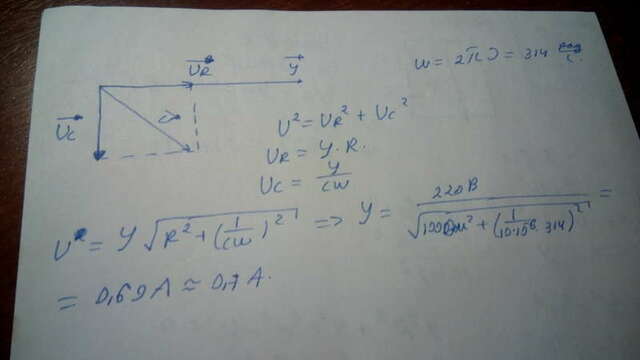 U_R У
ω = 2πν = 314 рад/с.
U_C U
U² = U_R² + U_C²
U_R = У · R.
U_C = У/cω
U = У √(R² + (1/cω)²) => У = 220В / √(100 Ом² + (1/10·10⁻⁶·314)²) =
= 0,69А ≈ 0,7А.